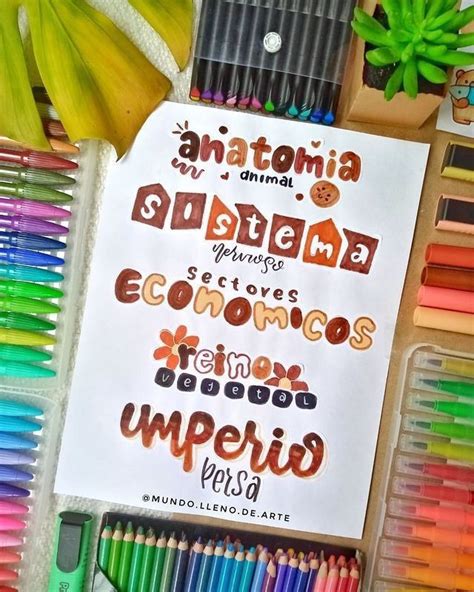 anatomia
animal
sistema
nervioso
sectores
ECONOMICOS
reino
vegetal
imperio
persa
@MUNDO.LLENO.DE.ARTE